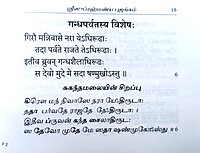 ஸ்ரீஸுப்ரஹ்மண்ய புஜங்கம் 18
गन्धपर्वतस्य विशेषः
गिरौ मन्निवासे नरा येऽधिरूढाः
तदा पर्वते राजते तेऽधिरूढाः।
इतीव ब्रुवन् गन्धशैलाधिरूढः
स देवो मुदे मे सदा षण्मुखोऽस्तु ॥ 6
ஸுகந்தமலையின் சிறப்பு
கிரௌ மந் நிவாஸே நரா யேऽதிரூடா:
ததா பர்வதே ராஜதே தேऽதிரூடா: |
இதீவ ப்ருவன் கந்த சைலாதிரூட:
ஸ தேவோ முதே மே ஸதா ஷண்முகோऽஸ்து || 6
F 2